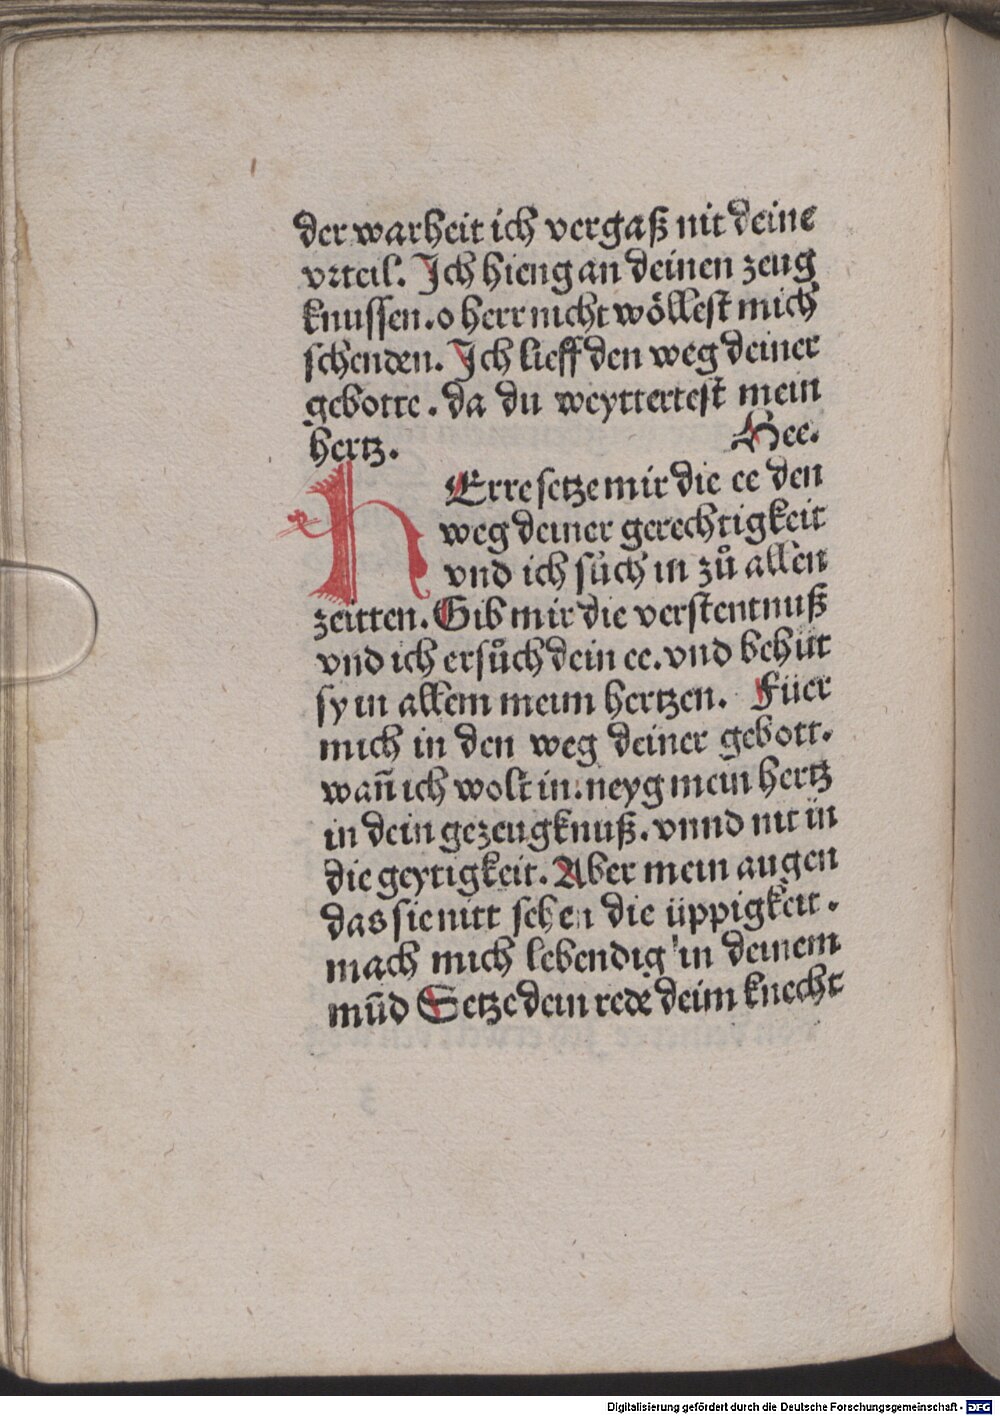 der warheit ich vergaß nit deine
vrteil. Ich hieng an deinen zeug
knussen. o herr nicht wöllest mich
schenden. Ich lieff den weg deiner
gebotte. da du weyttertest mein
hertz. Hee.
hErre setze mir die ee den
weg deiner gerechtigkeit
vnd ich sůch in zů allen
zeitten. Gib mir die verstentnuß
vnd ich ersůch dein ee. vnd behüt
sy in allem meim hertzen. Füer
mich in den weg deiner gebott.
wañ ich wolt in. neyg mein hertz
in dein gezeugknuß. vnnd nit in
die geytigkeit. Aber mein augen
das sie nitt sehen die üppigkeit.
mach mich lebendig in deinem
mūd Setze dein rede deim knecht
Digitalisierung gefördert durch die Deutsche Forschungsgemeinschaft - DFG